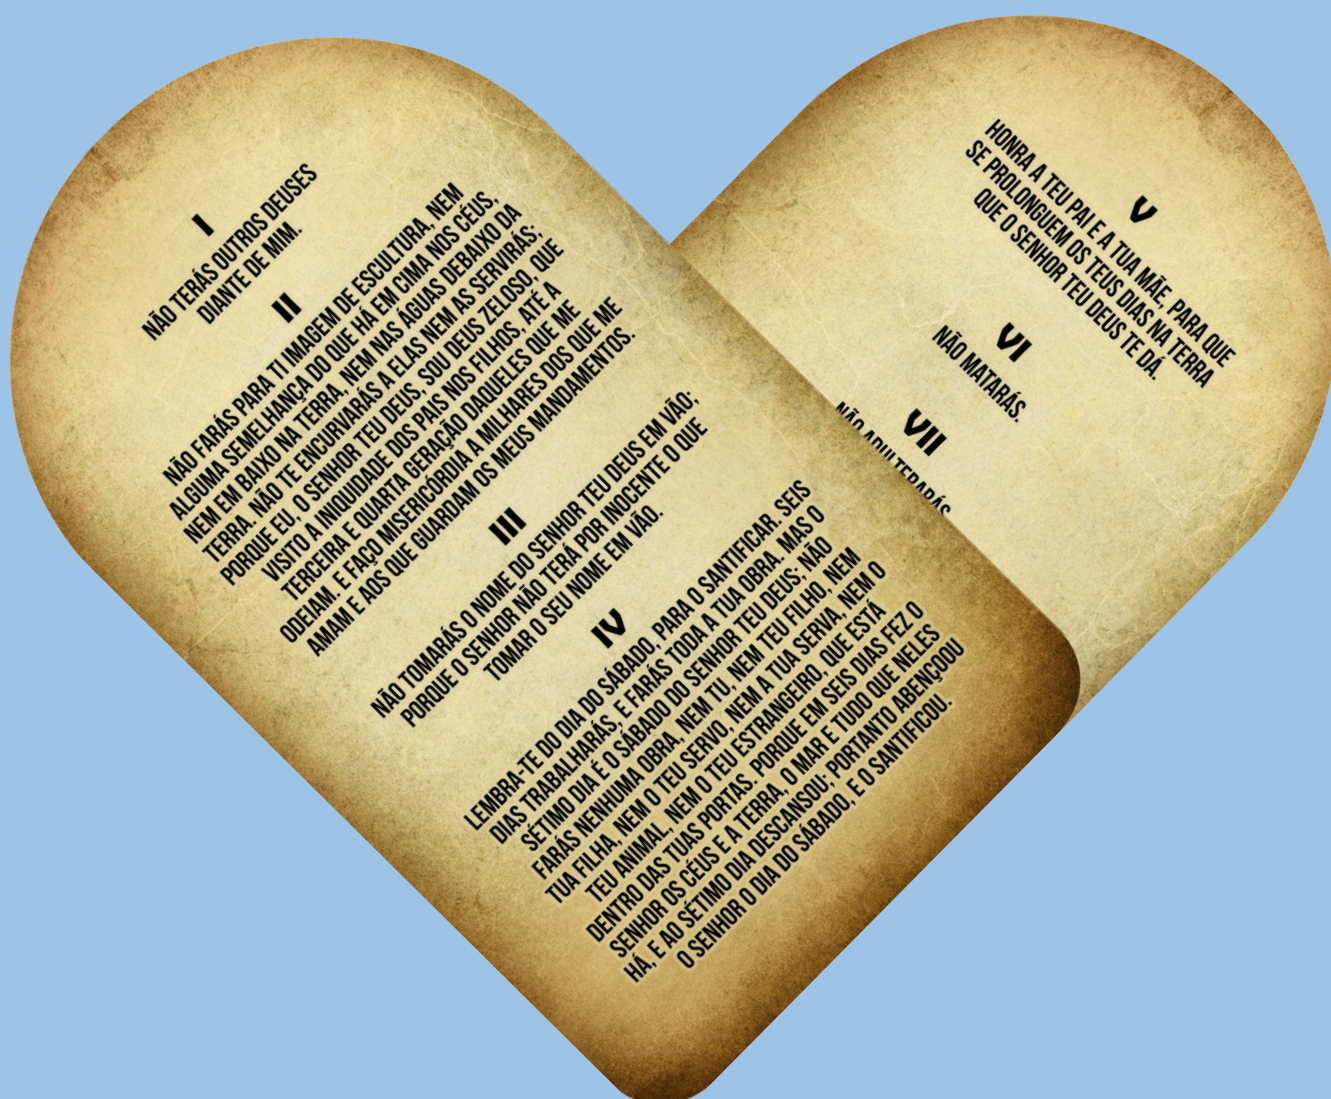 I
NÃO TERÁS OUTROS DEUSES
DIANTE DE MIM.
II
NÃO FARÁS PARA TI IMAGEM DE ESCULTURA, NEM
ALGUMA SEMELHANÇA DO QUE HÁ EM CIMA NOS CÉUS,
NEM EM BAIXO NA TERRA, NEM NAS ÁGUAS DEBAIXO DA
TERRA. NÃO TE ENCURVARÁS A ELAS NEM AS SERVIRÁS;
PORQUE EU, O SENHOR TEU DEUS, SOU DEUS ZELOSO, QUE
VISITO A INIQUIDADE DOS PAIS NOS FILHOS, ATÉ A
TERCEIRA E QUARTA GERAÇÃO DAQUELES QUE ME
ODEIAM. E FAÇO MISERICÓRDIA A MILHARES DOS QUE ME
AMAM E AOS QUE GUARDAM OS MEUS MANDAMENTOS.
III
NÃO TOMARÁS O NOME DO SENHOR TEU DEUS EM VÃO;
PORQUE O SENHOR NÃO TERÁ POR INOCENTE O QUE
TOMAR O SEU NOME EM VÃO.
IV
LEMBRA-TE DO DIA DO SÁBADO, PARA O SANTIFICAR. SEIS
DIAS TRABALHARÁS, E FARÁS TODA A TUA OBRA. MAS O
SÉTIMO DIA É O SÁBADO DO SENHOR TEU DEUS; NÃO
FARÁS NENHUMA OBRA, NEM TU, NEM TEU FILHO, NEM
TUA FILHA, NEM O TEU SERVO, NEM A TUA SERVA, NEM O
TEU ANIMAL, NEM O TEU ESTRANGEIRO, QUE ESTÁ
DENTRO DAS TUAS PORTAS. PORQUE EM SEIS DIAS FEZ O
SENHOR OS CÉUS E A TERRA, O MAR E TUDO QUE NELES
HÁ, E AO SÉTIMO DIA DESCANSOU; PORTANTO ABENÇOOU
O SENHOR O DIA DO SÁBADO, E O SANTIFICOU.
V
HONRA A TEU PAI E A TUA MÃE, PARA QUE
SE PROLONGUEM OS TEUS DIAS NA TERRA
QUE O SENHOR TEU DEUS TE DÁ.
VI
NÃO MATARÁS.
VII
NÃO ADULTERARÁS.